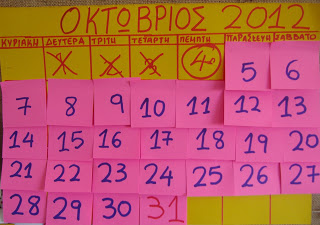 ΟΚΤΩΒΡΙΟΣ 2012
ΚΥΡΙΑΚΗ ΔΕΥΤΕΡΑ ΤΡΙΤΗ ΤΕΤΑΡΤΗ ΠΕΜΠΤΗ ΠΑΡΑΣΚΕΥΗ ΣΑΒΒΑΤΟ
1 2 3 4 5 6
7 8 9 10 11 12 13
14 15 16 17 18 19 20
21 22 23 24 25 26 27
28 29 30 31